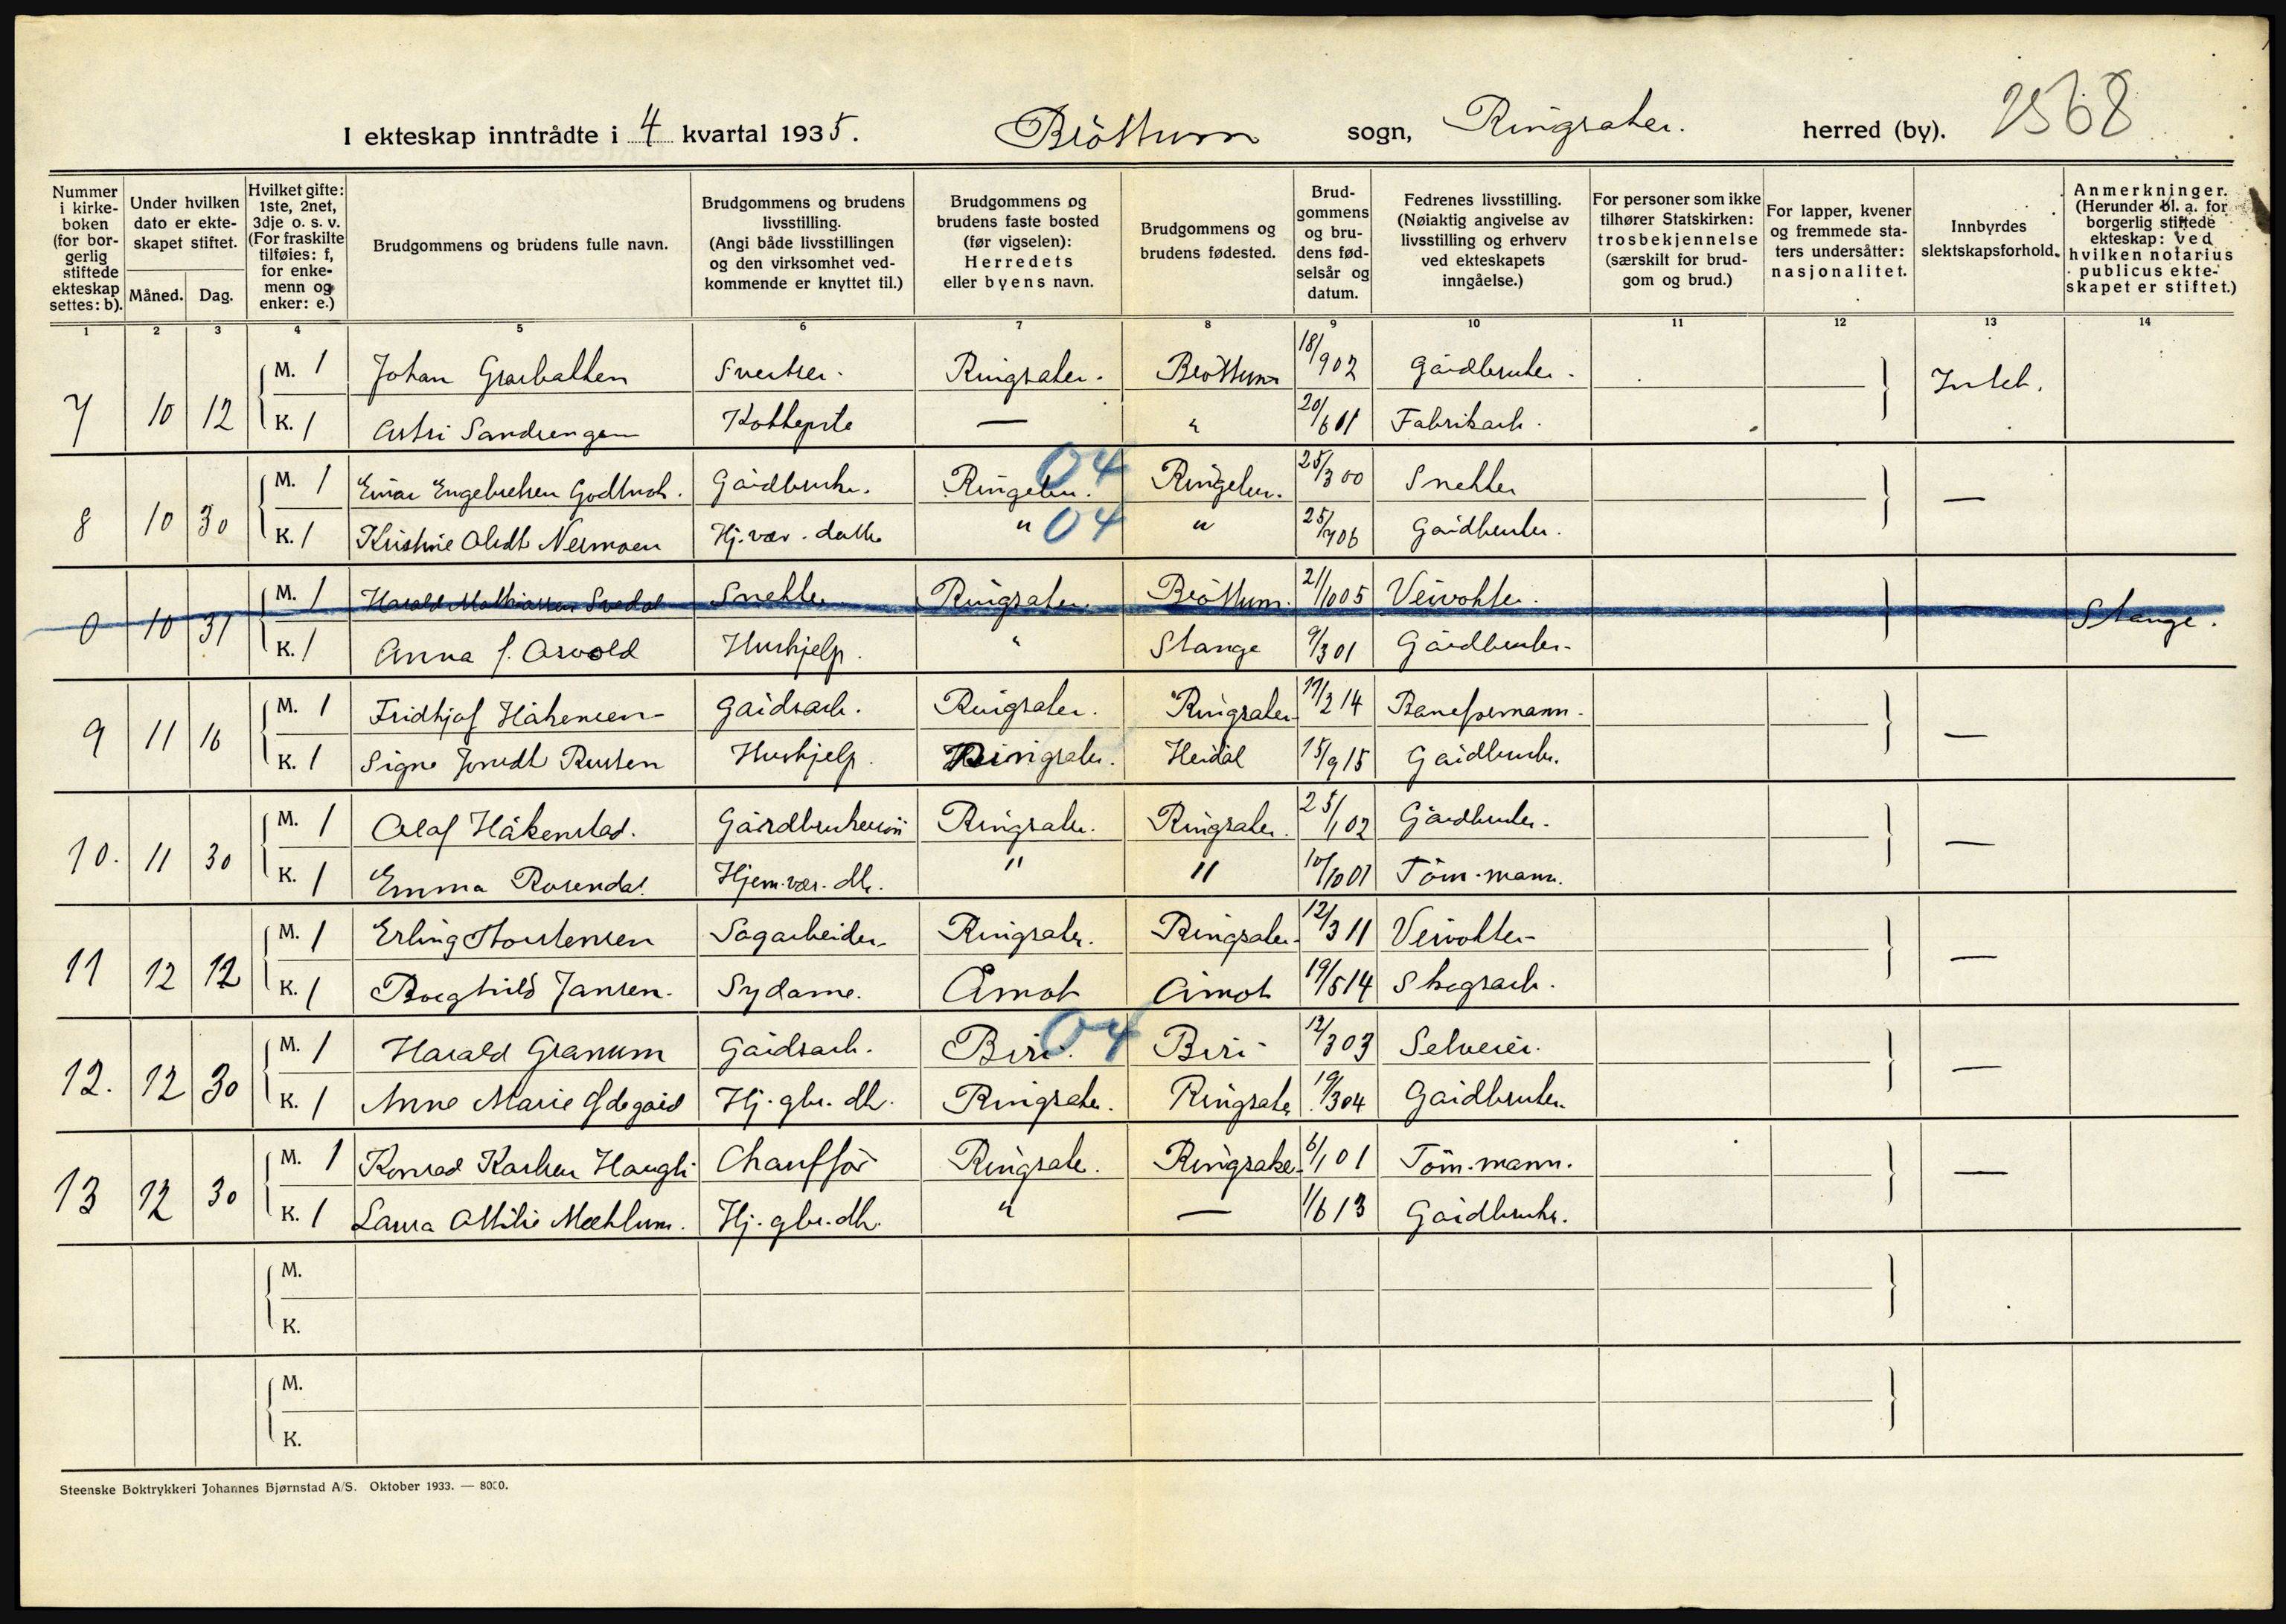 I ekteskap inntrådte i 4 kvartal 1935. Brøttum sogn, Ringsaker. herred (by). 2568
Nummer i kirkeboken (for borgerlig stiftede ekteskap settes: b).
Under hvilken dato er ekteskapet stiftet.
Måned. Dag.
Hvilket gifte: 1ste, 2net, 3dje o. s. v. (For fraskilte tilføies: f, for enkemenn og enker: e.)
Brudgommens og brudens fulle navn.
Brudgommens og brudens livsstilling. (Angi både livsstillingen og den virksomhet vedkommende er knyttet til.)
Brudgommens og brudens faste bosted (før vigselen): Herredets eller byens navn.
Brudgommens og brudens fødested.
Brudgommens og brudens fødselsår og datum.
Fedrenes livsstilling. (Nøiaktig angivelse av livsstilling og erhverv ved ekteskapets inngåelse.)
For personer som ikke tilhører Statskirken: trosbekjennelse (særskilt for brudgom og brud.)
For lapper, kvener og fremmede staters undersåtter: nasjonalitet.
Innbyrdes slektskapsforhold.
Anmerkninger. (Herunder bl. a. for borgerlig stiftede ekteskap: Ved hvilken notarius publicus ekteskapet er stiftet.)
1 2 3 4 5 6 7 8 9 10 11 12 13 14
7 10 12 M. 1 Johan Ringsaker. Brøttum 18/902 Gårdbruker.
K. 1 Astri Sandsengen — " 20/6 01 Fabrikarb.
8 10 30 M. 1 Einar Engebretsen Gårdbruker. 04 25/3 00 Snekker
K. 1 Kristine Nermoen Hj.vær. datter " 04 " 25/7 06 Gårdbruker.
0 10 31 M. 1 Harald Mathiassen Snekker Ringsaker. Brøttum. 21/10 05 Veivokter. — Stange.
K. 1 Anna f. Arvold Hushjelp. " Stange 9/3 01 Gårdbruker.
9 11 16 M. 1 Fridtjof Håkensen Gårdsarb. Ringsaker. Ringsaker 17/2 14 Baneformann.
K. 1 Signe Rusten Hushjelp. Ringsaker. Heidal 15/9 15 Gårdbruker. —
10. 11 30 M. 1 Olaf Håkenstad. Ringsaker. Ringsaker. 25/1 02 Gårdbruker.
K. 1 Emma Rosendal. Hjem.vær. dtr. " " 10/10 01 Tøm.mann. —
11 12 12 M. 1 Erling Torstensen Sagarbeider Ringsaker. Ringsaker 12/3 11 Veivokter
K. 1 Borghild Jansen. Sydame. Åmot Åmot 19/5 14 Skogsarb. —
12. 12 30 M. 1 Harald Granum Gårdsarb. Biri. 04 Biri 12/3 03 Selveier.
K. 1 Anne Marie Ødegård Hj. gbr. dtr. Ringsaker. Ringsaker 19/3 04 Gårdbruker. —
13 12 30 M. 1 Konrad Karlsen Haugli Chauffør Ringsaker. Ringsaker 6/1 01 Tøm.mann. —
K. 1 Laura Otilie Mæhlum. Hj. gbr. dtr. " — 1/6 13 Gårdbruker.
M.
K.
M.
K.
Steenske Boktrykkeri Johannes Bjørnstad A/S. Oktober 1933. — 8000.